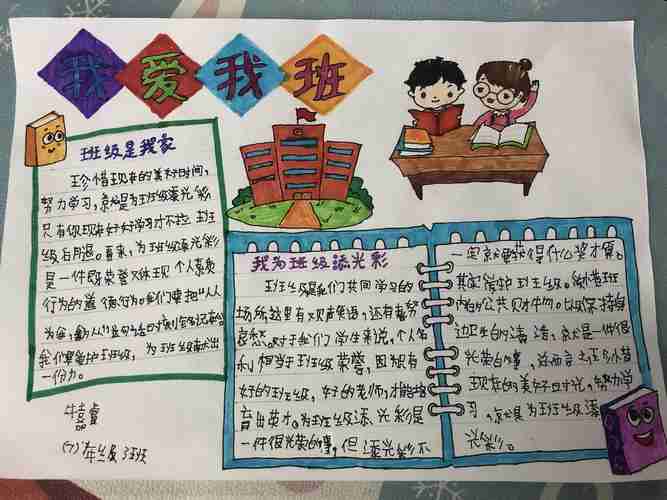 我爱我班
班级是我家
珍惜现在的美好时间,
努力学习,就是为班级添光彩
只有你现在好好学习才不拉班
级后腿。再来,为班级添光彩
是一件既荣誉又体现个人素质
行为的道德行为。我们要把“人人
为我
我们要爱护班级,为班级献出
一份力。
牛嘉睿
(7)年级3班
我为班级添光彩
班级是我们共同学习的
场所,这里有欢声笑语,还有着努
对于我们学生来说,个人名
利相当于班级荣誉,因为有
好的班级,好的老师,才能培
育出英才。为班级添光彩是
一件很光荣的事,但添光彩不
一定就要获得什么奖才算。
其实爱护班级。珍惜班
内的公共财物。以及保持身
边卫生的清洁,就是一件很
光荣的事,总而言之
现在的美好时光,努力学
习,就是为班级添
光彩。